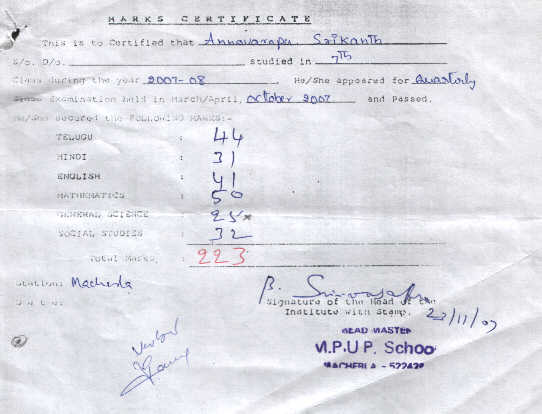 MARKS CERTIFICATE
This is to Certified that Annavarapu. Srikanth
S/o. D/o. studied in 7th
Class during the year 2007-08. He/She appeared for Quarterly
Examination held in March/April, October 2007 and Passed.
He/She secured the FOLLOWING MARKS:-
TELUGU : 44
HINDI : 31
ENGLISH : 41
MATHEMATICS : 50
GENERAL SCIENCE : 25*
SOCIAL STUDIES : 32
Total Marks : 223
Station: Macherla
Date:
Signature of the Head of the
Institute with Stamp. 23/11/07
HEAD MASTER
M.P.U.P. Schoo
MACHERLA - 522426